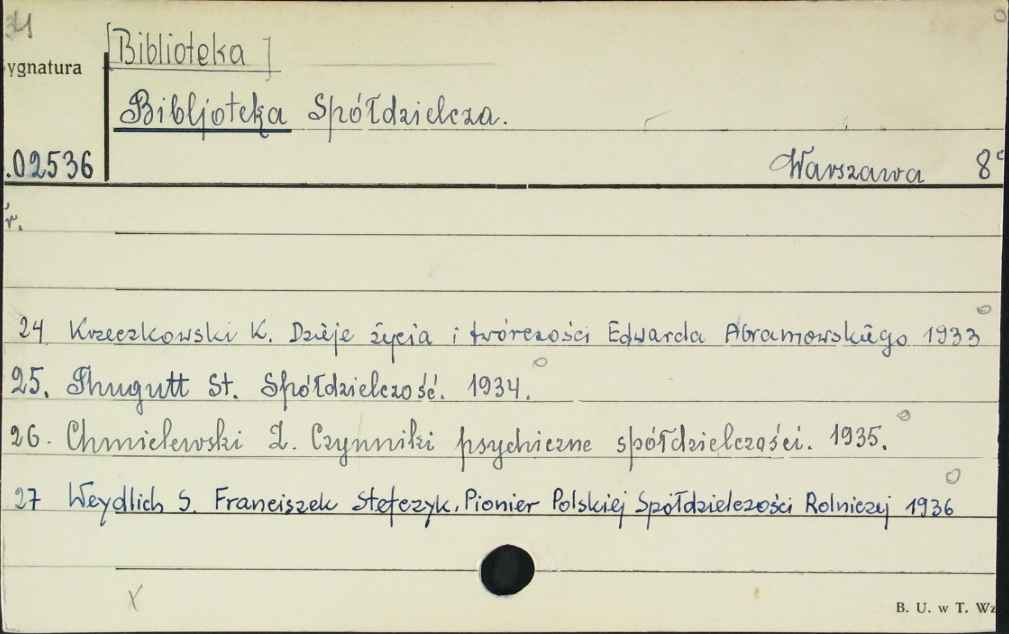 34
[Biblioteka]
ygnatura
Bibljoteka Spółdzielcza.
.02536
Warszawa 8°
r.
24 Krzeczkowski K. Dzieje życia i twórczości Edwarda Abramowskiego 1933
25. Thugutt St. Spółdzielczość. 1934.
26. Chmielewski Z. Czynniki psychiczne spółdzielczości. 1935.
27 Weydlich S. Franciszek Stefczyk. Pionier Polskiej Spółdzielczości Rolniczej 1936
X
B. U. w T. Wz